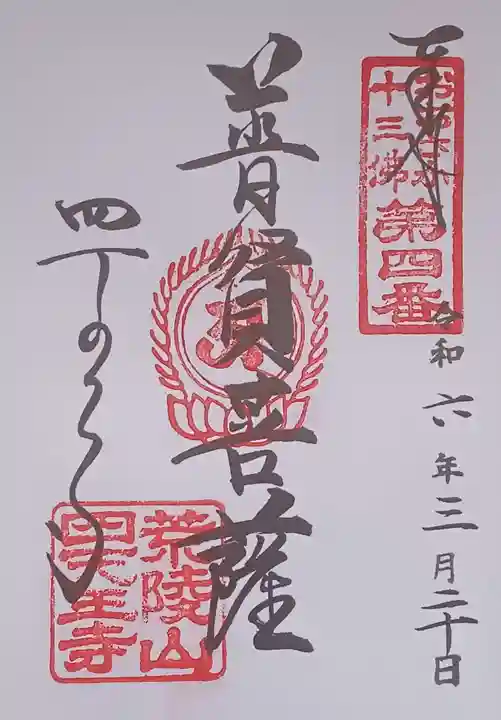 奉拝
おおさか
十三佛第四番
令和六年三月二十日
普賢菩薩
四天王寺
荒陵山
四天王寺